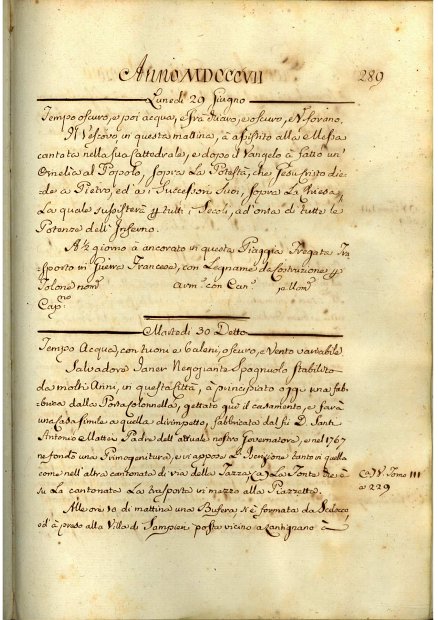 Anno MDCCCVII
289
Lunedì 29 Giugno
Tempo oscuro, e poi acqua, e oscuro, e
Il Vescovo in questa mattina, à assistito alla Messa
cantata nella sua Cattedrale, e dopo il Vangelo à fatto un'
Omelia al Popolo, sopra La Potestà, che Jesu Cristo die-
de a Pietro, ed a i Successori Suoi, sopra La Chiesa,
La quale sussisterà tutti i Secoli, ad'onta di tutte le
Potenze dell'Inferno.
A ½ giorno à ancorato in questa Piaggia Fregata Tra-
sporto in Guerra Francese, con Legname da Costruzione
Tolone nom.ª arm.ª con Can.ⁿⁱ, e Uom.ⁿⁱ
Cap.no
Martedì 30 Detto
Tempo Acqua, con tuoni e baleni, oscuro, e Vento variabile
Salvadore Janer Negoziante Spagnuolo stabilito
da molti Anni, in questa Città, à principiato una fab-
brica dalla Porta Colonnella, gettato giù il casamento, e farà
una Casa simile a quella dirimpetto, fabbricata dal fù D. Santi
Antonio Mattei Padre dell'attuale nostro Governatore, e nel 1767
ne fondò una Primogenitura, e vi appose L'Iscrizione tanto in quella
come nell'altra cantonata di via della Tazza; (a) La Fonte che è
su La cantonata La trasporta in mezzo alla Piazzetta.
(a) V. Tomo III
a 229
Alle ore 10 di mattina una Bufera si è formata da Scilocco
ed'à preso alla Villa di Sampieri posta vicino a Antignano à